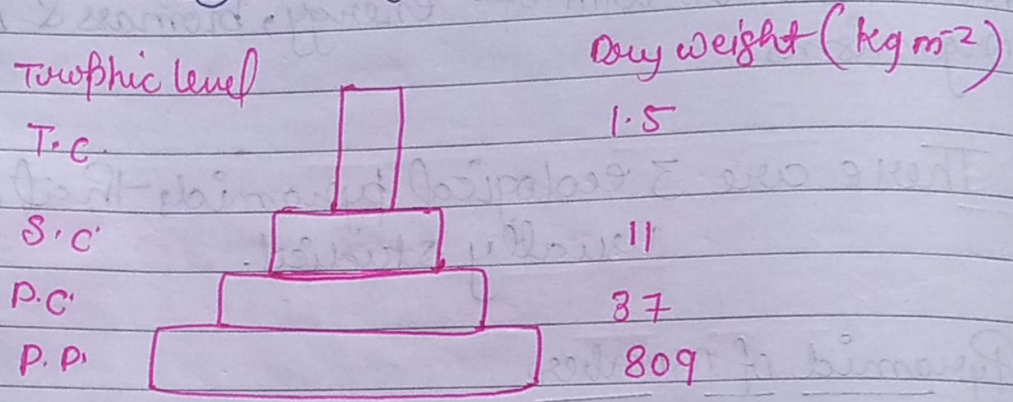 Trophic level Dry weight (kg m-2)
T.C. 1.5
S.C 11
P.C. 37
P.P. 809